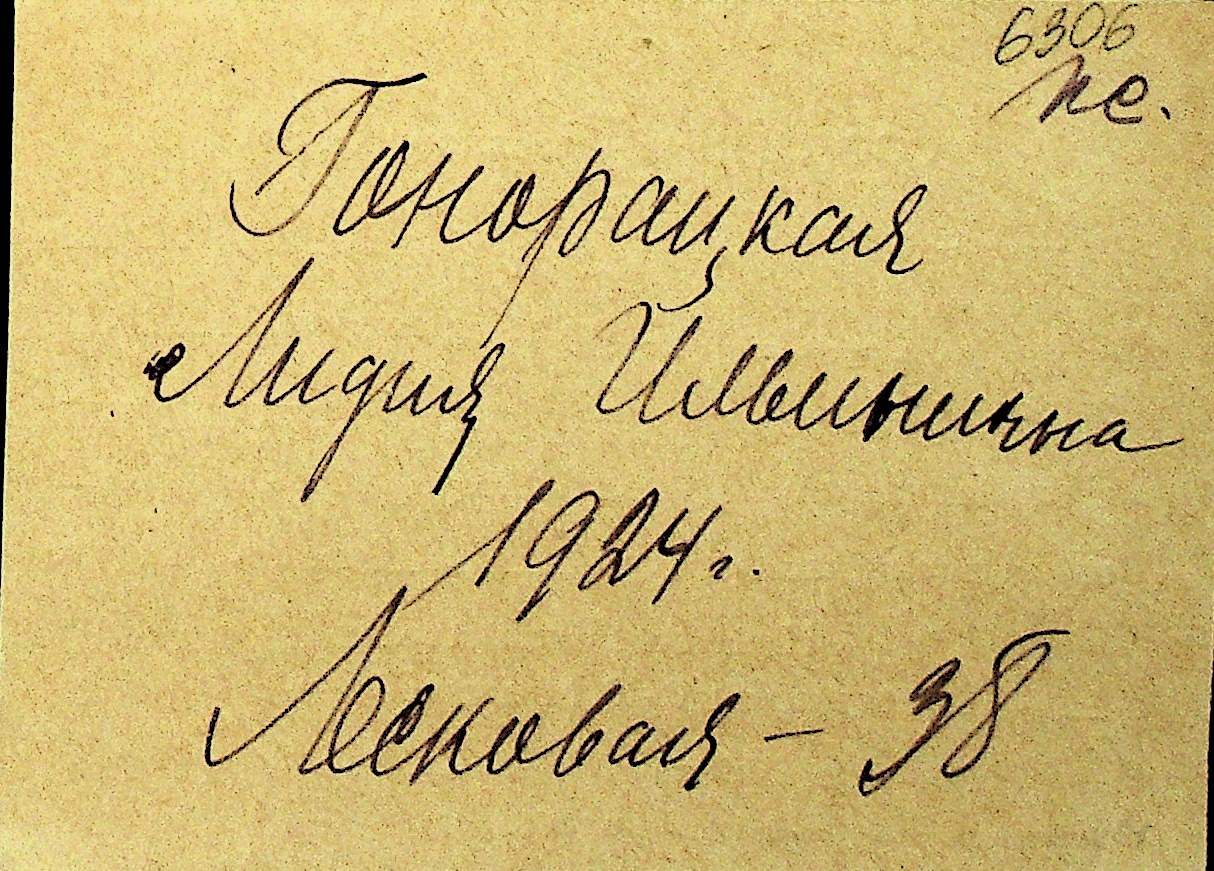 6306
пс.
Гонорацкая
Лидия Ильинична
1924 г.
Лесковая - 38